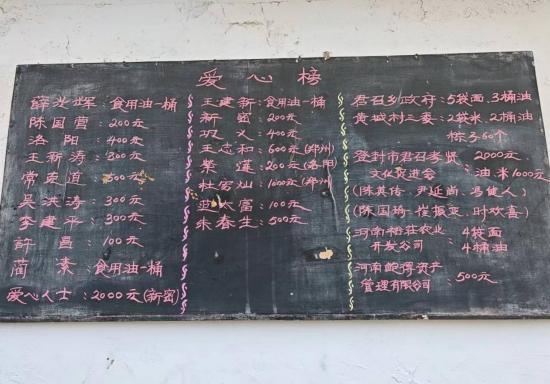 爱心榜
薛光辉：食用油一桶
陈国营：200元
洛阳：400元
王新涛：300元
常宏道：500元
吴洪涛：300元
李建平：300元
許昌：100元
蔺素：食用油一桶
爱心人士：2000元(新密)
王建新：食用油一桶
新密：200元
巩义：400元
王志和：600元(郑州)
荣莲：200元(洛阳)
杜富灿：1000元(郑州)
范大富：100元
朱春生：500元
君召乡政府：5袋面.3桶油
黄城村三委：2袋米.2桶油
粽子60个
登封市君召孝贤 2000元
文化促进会：油.米1000元
(陈其传.尹延尚.冯健人)
(陈国瑜.崔振亚.时欢喜)
河南裕荘农业 4袋面
开发公司：4桶油
河南 得资产
管理有限公司：500元